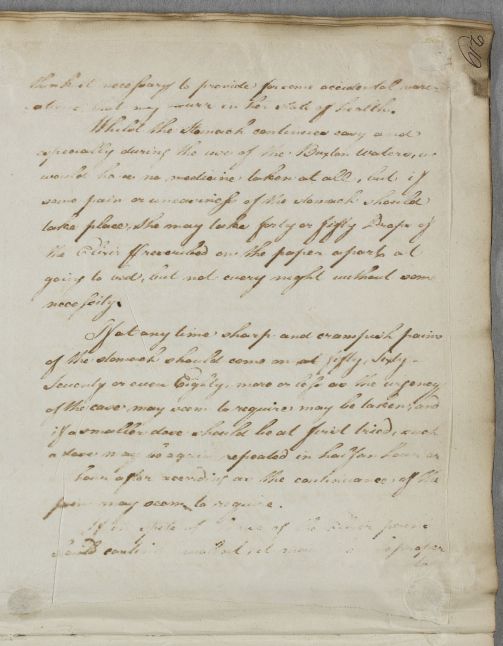 219
think it necessary to provide for some accidental
that may occur in her state of health.
Whilst the Stomach continues easy and
especially during the use of the Buxton waters, we
would have no medicine taken at all, but if
some pain or uneasiness of the stomach should
take place, she may take forty or fifty Drops of
the Elixir prescribed on the paper apart, at
going to bed, but not every night without some
necessity.
If at any time sharp and crampish pains
of the stomach should come on at fifty, Sixty
Seventy or even Eighty, more or less as the urgency
of the case may seem to require may be taken, and
if a smaller dose should be at first tried, such
a dose may be again repeated in half an hour or
hour after according as the continuance of the
pain may seem to require.
If in spite of of the
should continue